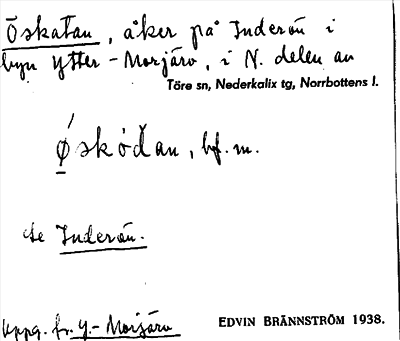 Öskatan, åker på Inderön i
byn Ytter-Morjärv, i N. delen av
Töre sn, Nederkalix tg, Norrbottens l.
Ǿskòđan, bf. m.
Se Inderön.
Uppg. fr. Y.-Morjärv
EDVIN BRÄNNSTRÖM 1938.